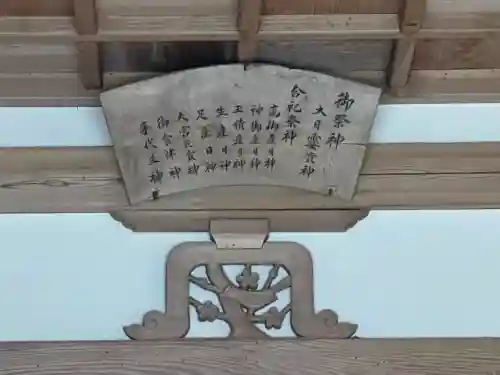 御祭神
大日孁貴神
合祀祭神
高御産日神
神御産日神
玉積産日神
生産日神
足産日神
大宮比売神
御食津神
事代主神